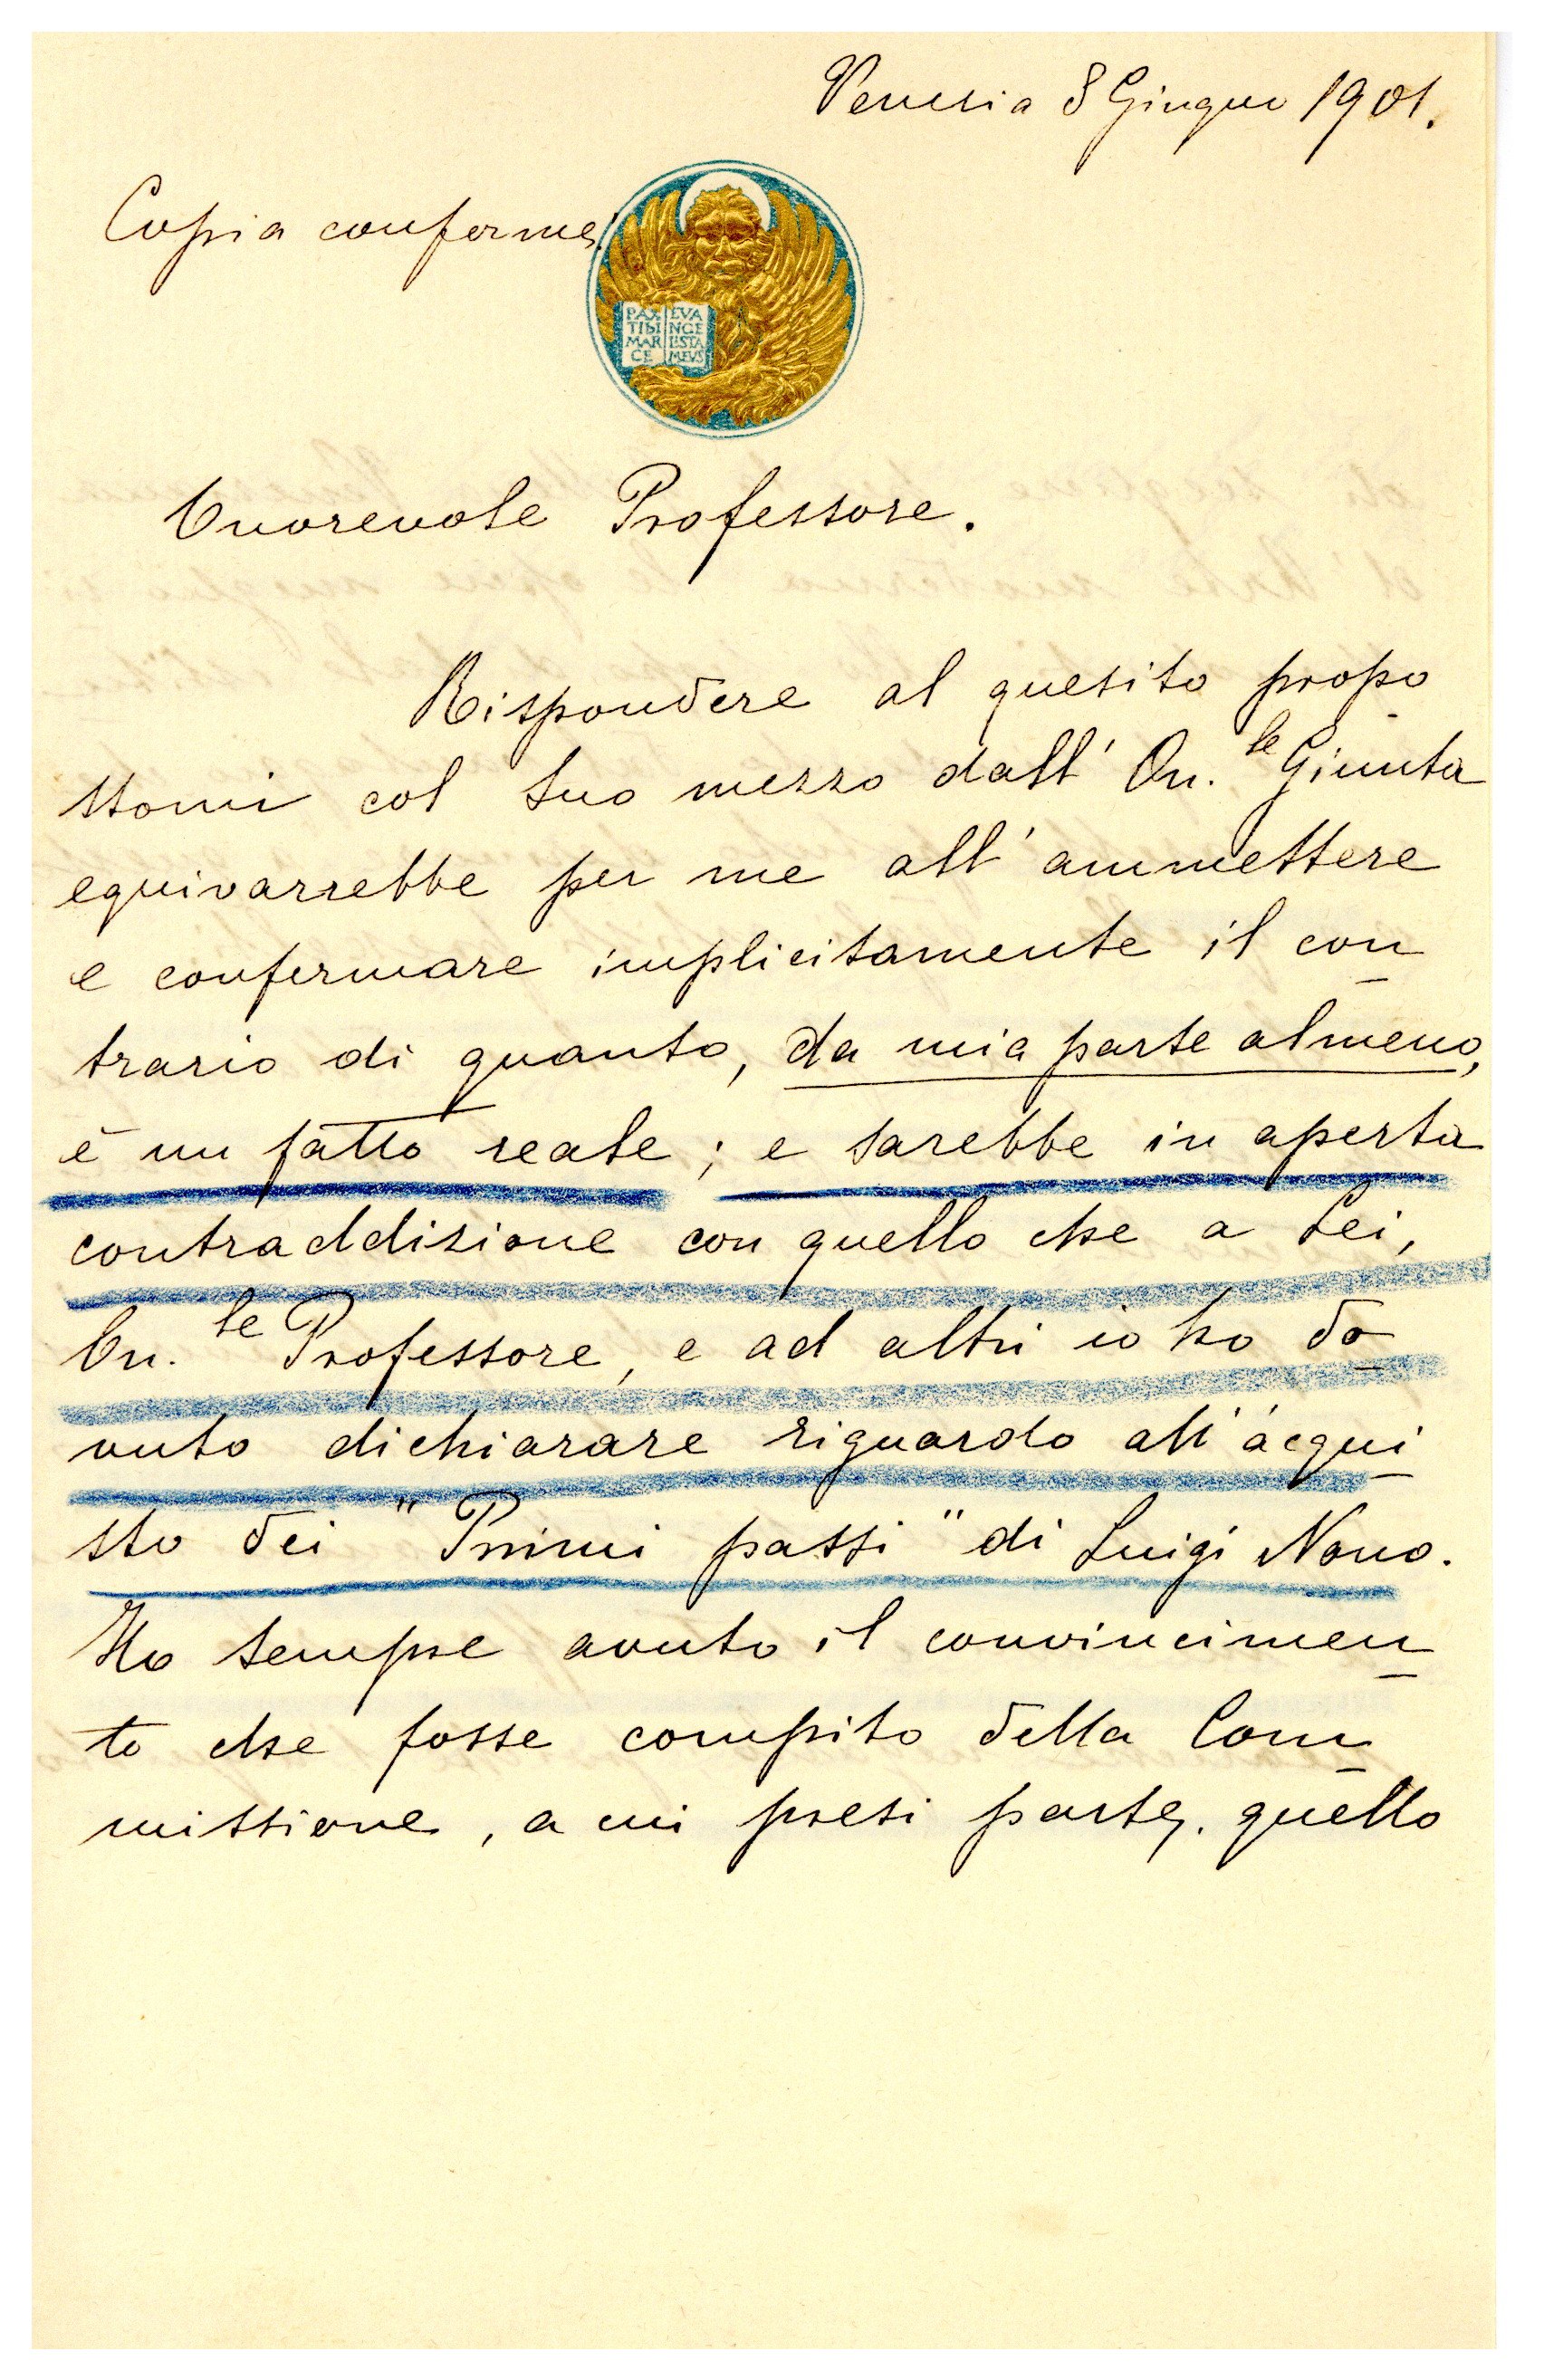 Venezia 8 Giugno 1901.
Copia conforme.
PAX EVA
TIBI NGE
MAR LISTA
CE MEVS
Onorevole Professore.
Rispondere al quesito propo
stomi col suo mezzo dall' On.le Giunta
equivarrebbe per me all' ammettere
e confermare implicitamente il con
trario di quanto, da mia parte almeno,
è un fatto reale; e sarebbe in aperta
contraddizione con quello che a Lei,
On.le Professore, e ad altri io ho do
vuto dichiarare riguardo all' acqui
sto dei "Primi passi" di Luigi Nono.
Ho sempre avuto il convincimen
to che fosse compito della Com
missione, a cui presi parte, quello